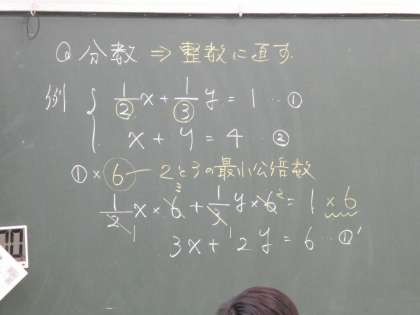 ◎ 分数 ⇒ 整数に直す
例 { 1/2 x + 1/3 y = 1 …①
x + y = 4 …②
① × 6 ー 2と3の最小公倍数
1/2 x × 6 3 + 1/3 y × 6 2 = 1 × 6
1 1
3x + 2y = 6 …①'